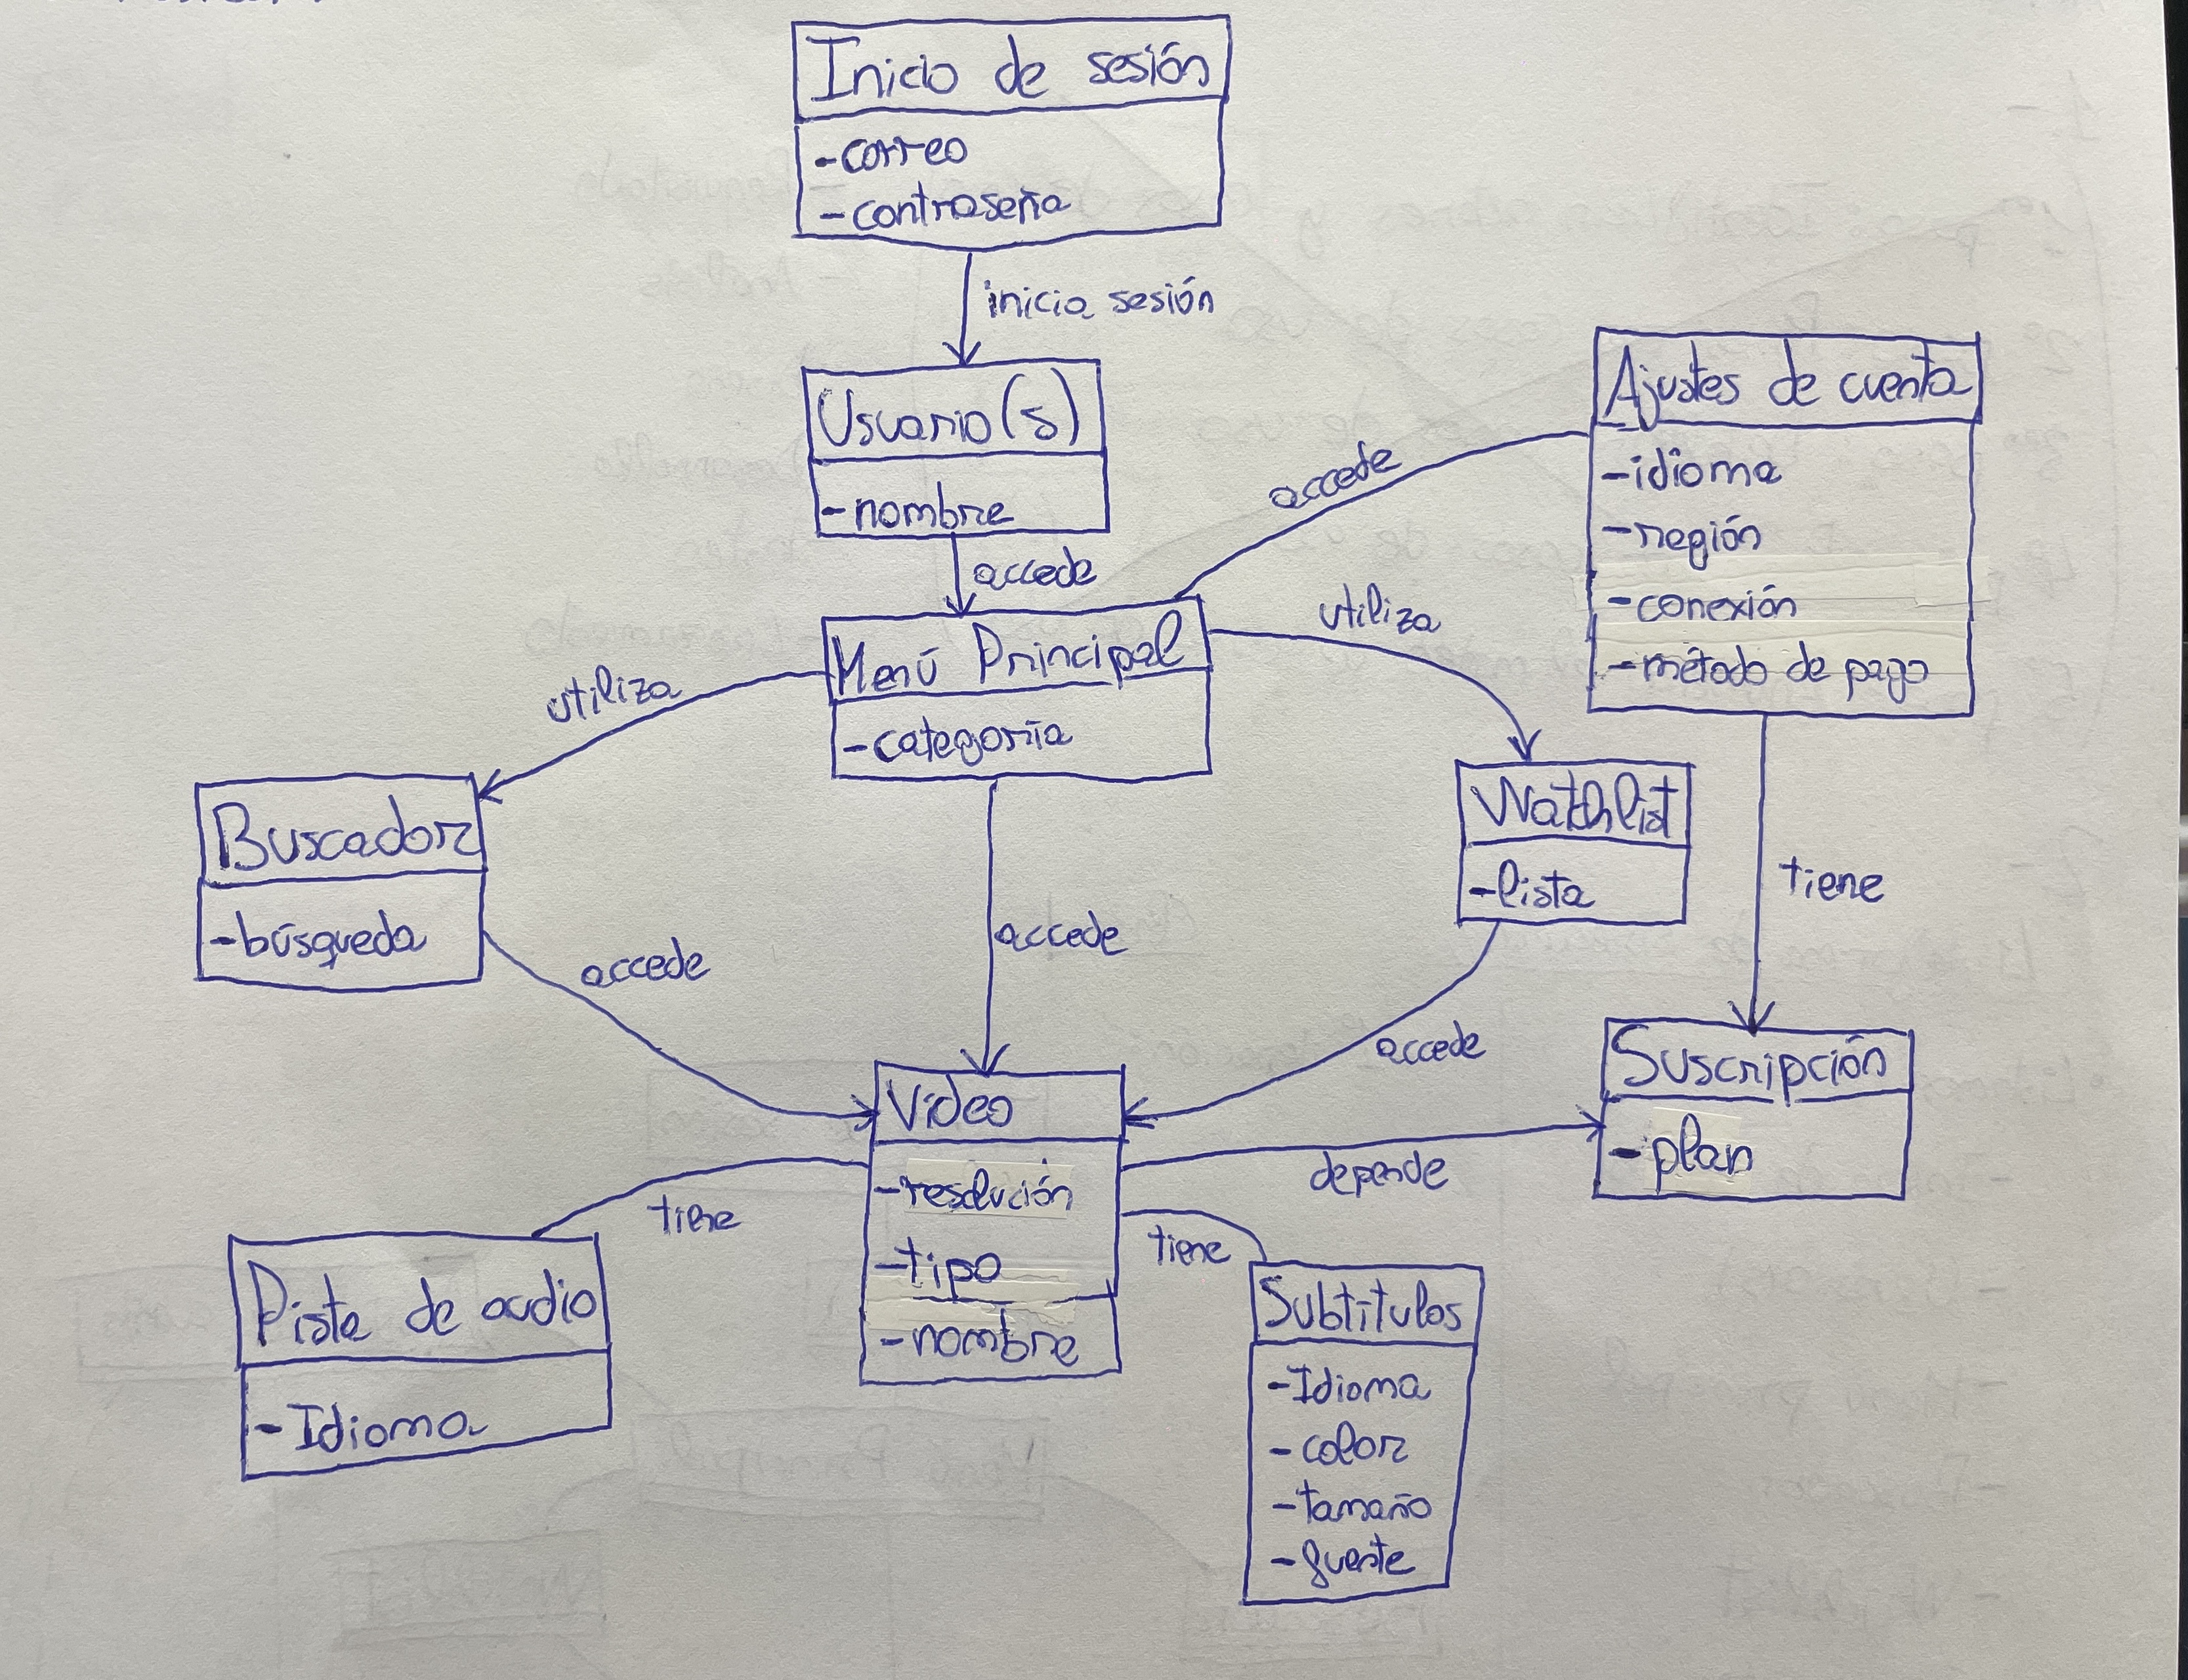 Inicio de sesión
-correo
-contraseña
inicia sesión
Usuario(s)
-nombre
accede
Ajustes de cuenta
-idioma
-región
-conexión
-método de pago
accede
utiliza
utiliza
Menú Principal
-categoría
Buscador
-búsqueda
Watchlist
-lista
tiene
accede
accede
accede
Suscripción
-plan
Video
-resolución
-tipo
-nombre
depende
tiene
tiene
Pista de audio
-Idioma
Subtítulos
-Idioma
-color
-tamaño
-fuente